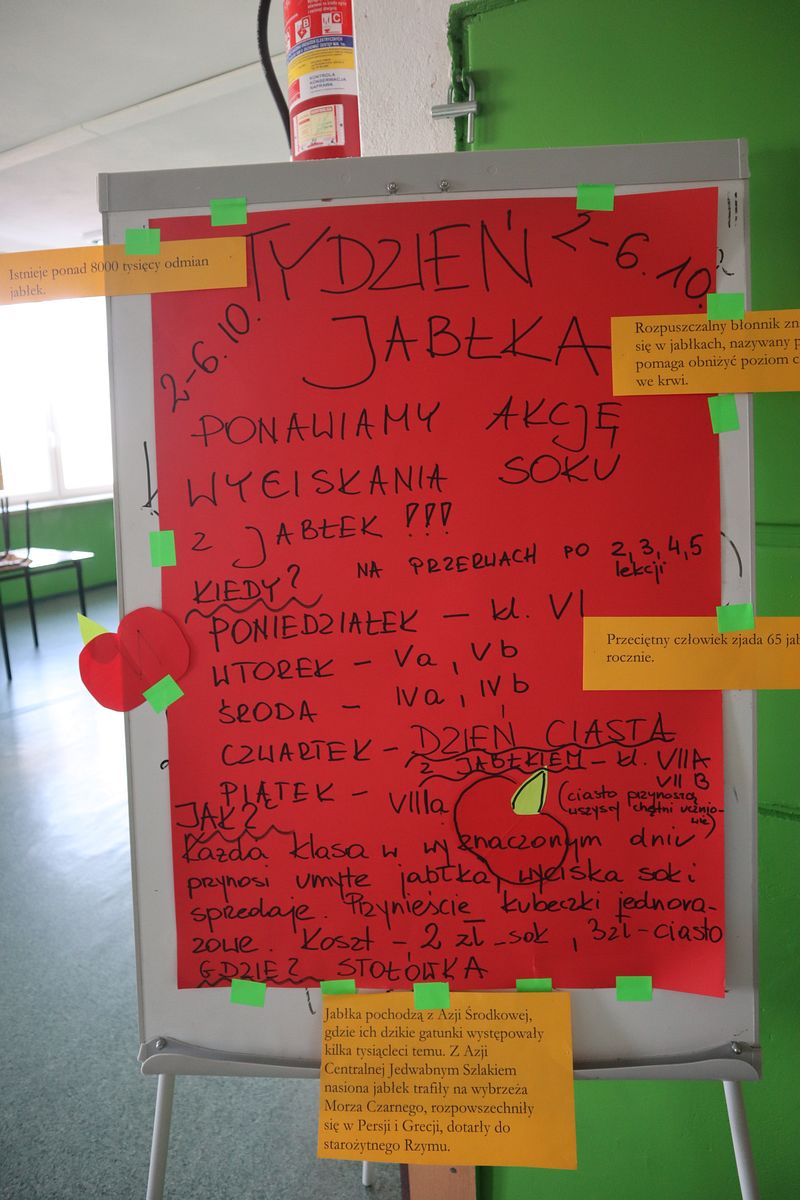 KONTROLA
KONSERWACJA
NAPRAWA
Istnieje ponad 8000 tysięcy odmian
jabłek.
TYDZIEŃ 2-6.10.
2-6.10. JABŁKA
Rozpuszczalny błonnik zn
się w jabłkach, nazywany p
pomaga obniżyć poziom c
we krwi.
PONAWIAMY AKCJĘ
WYCISKANIA SOKU
Z JABŁEK !!!
KIEDY? NA PRZERWACH PO 2, 3, 4, 5
lekcji
PONIEDZIAŁEK – kl. VI
WTOREK – Va, Vb
Przeciętny człowiek zjada 65 jab
rocznie.
ŚRODA – IVa, IVb
CZWARTEK – DZIEŃ CIASTA
Z JABŁKIEM – kl. VIIA
VII B
PIĄTEK – VIIIa
(ciasto przynoszą
wszyscy chętni uczniowie)
JAK?
Każda klasa w wyznaczonym dniu
przynosi umyte jabłka, wyciska sok i
sprzedaje. Przynieście kubeczki jednora-
zowe. Koszt – 2 zł – sok, 3zł – ciasto
GDZIE? STOŁÓWKA
Jabłka pochodzą z Azji Środkowej,
gdzie ich dzikie gatunki występowały
kilka tysiącleci temu. Z Azji
Centralnej Jedwabnym Szlakiem
nasiona jabłek trafiły na wybrzeża
Morza Czarnego, rozpowszechniły
się w Persji i Grecji, dotarły do
starożytnego Rzymu.